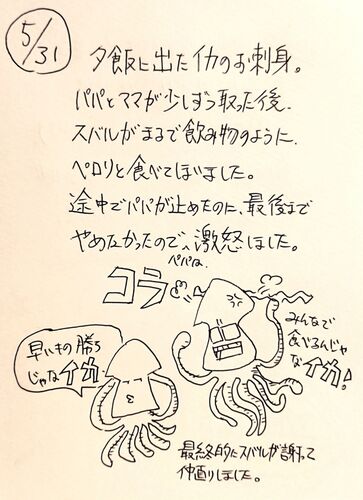 5/31
夕飯に出たイカのお刺身。
パパとママが少しずつ取った後、
スバルがまるで飲み物のように、
ペロリと食べてしまいました。
途中でパパが止めたのに、最後まで
やめなかったので、激怒しました。
パパは、
コラ
みんなで
食べるんじゃ
なイカ!
早いもの勝ち
じゃなイカ
最終的にスバルが謝って
仲直りしました。